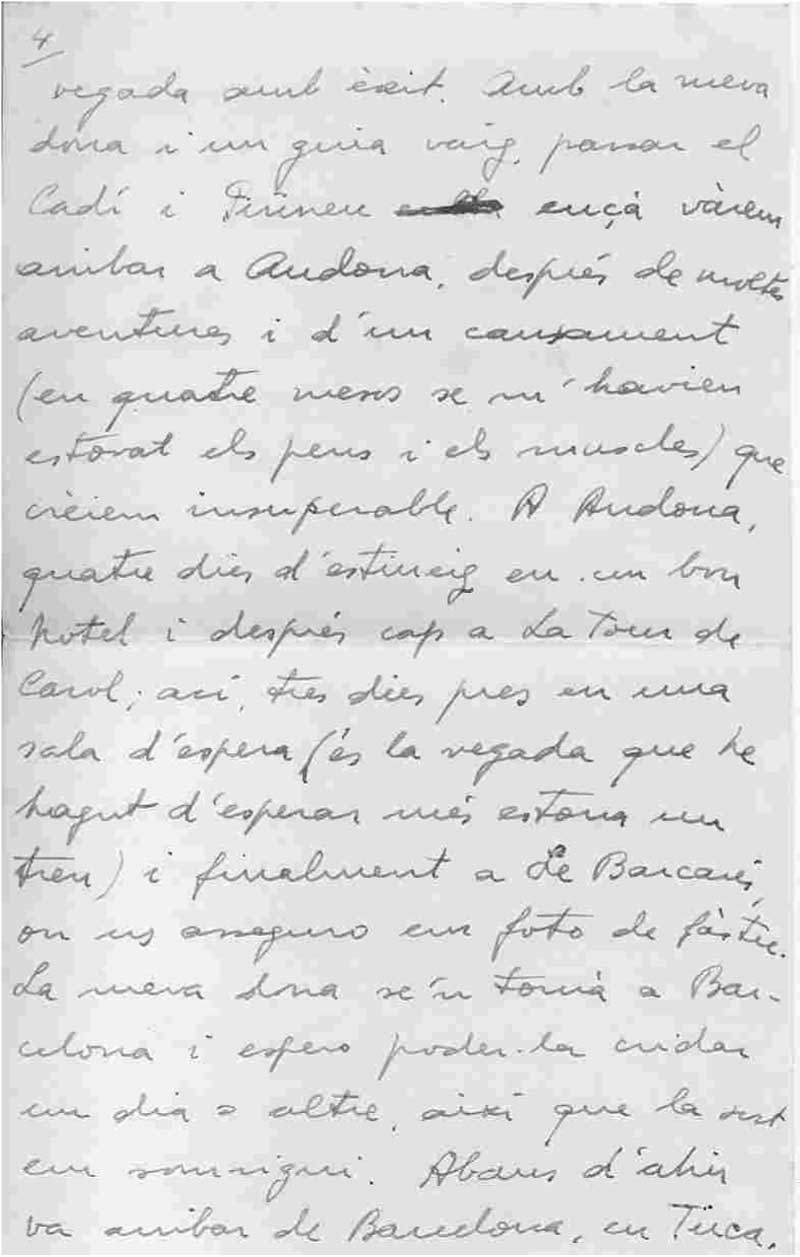 4
vegada amb èxit. Amb la meva
dona i un guia vaig passar el
Cadí i Pirineu ençà vàrem
arribar a Andorra, després de moltes
aventures i d'un cansament
(en quatre mesos se m'havien
estovat els peus i els muscles) que
crèiem insuperable. A Andorra,
quatre dies d'estiueig en un bon
hotel i després cap a La Tour de
Carol; ací, tres dies pres en una
sala d'espera (és la vegada que he
hagut d'esperar més estona un
tren) i finalment a Le Barcarès,
on us asseguro em foto de fàstic.
La meva dona se'n tornà a Bar-
celona i espero poder-la cridar
un dia o altre, així que la sort
em somrigui. Abans d'ahir
va arribar de Barcelona, en Tísca,